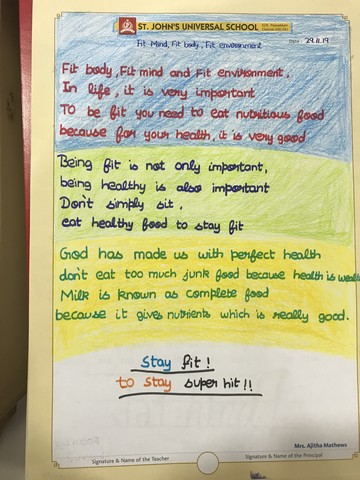 ST. JOHN'S UNIVERSAL SCHOOL
Fit Mind, Fit body, Fit environment
Date: 29.11.19
Fit body, Fit mind and Fit environment.
In life, it is very important
TO be fit you need to eat nutritious food
because for your health, it is very good
Being fit is not only important,
being healthy is also important
Don't simply sit,
eat healthy food to stay fit
God has made us with perfect health
don't eat too much junk food because health is wealt
Milk is known as complete food
because it gives nutrients which is really good.
stay fit!
to stay super hit!!
Mrs. Ajitha Mathews
Signature & Name of the Teacher
Signature & Name of the Principal